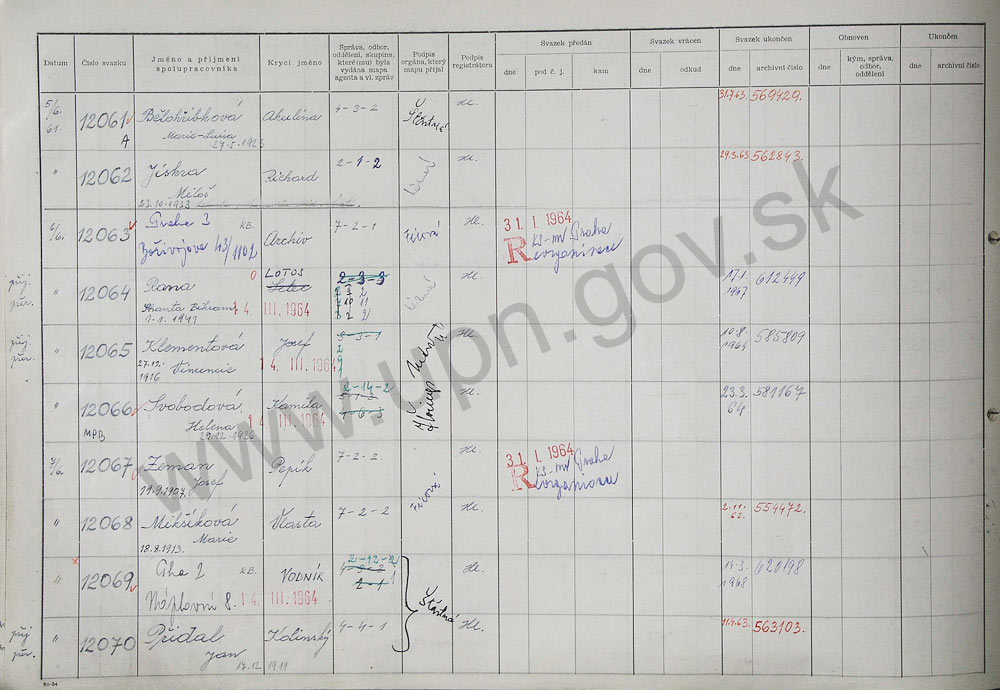 Datum
Číslo svazku
Jméno a příjmení
spolupracovníka
Krycí jméno
Správa, odbor,
oddělení, skupina,
které(mu) byla
vydána mapa
agenta a vl. zpráv
Podpis
orgána, který
mapu přijal
Podpis
registrátora
Svazek předán
dne
pod č. j.
kam
Svazek vrácen
dne
odkud
Svazek ukončen
dne
archivní číslo
Obnoven
dne
kým, správa,
odbor,
oddělení
Ukončen
dne
archivní číslo
5/6.
61.
12061
A
Bělohříbková
Marie-Luisa
27.5.1923
Akulina
4-3-2
Šťastná
Hl.
31.7.63. 569429.
" 12062 Jiskra
Miloš
23.10.1933
Richard
2-1-2
Hl.
29.3.63 562843.
6/6. 12063 Praha 3 KB.
Bořivojova 43/1102
Archiv
7-2-1
Hl.
31. I. 1964
R KS-MV Praha
eorganisací
" 12064 Rana
1.1.1941
LOTOS
14. III. 1964
2-3-3
Hl.
17.1.
1967
612449
" 12065 Klementová
27.12.
1916 Vincencie
Josef
14. III. 1964
3-3-1
Hl.
10.8.
1964
585809
" 12066 Svobodová
MPB
Helena
29.12.1926
Kamila
14. III. 1964
2-14-2
Hl.
23.3.
64
581167
7/6. 12067 Zeman
19.9.1907. Josef
Pepik
7-2-2.
Hl.
31. I. 1964
R KS-MV Praha
eorganisací
" 12068 Mikšíková
Marie
18.8.1913.
Vlasta
7-2-2
Hl.
2.11.
62.
554472.
" 12069 Pha 2 KB.
Náplavní 8.
VODNÍK
14. III 1964
2-12-2
2-1
Šťastná
Hl.
14.3.
1968
620198
" 12070 Přidal
Jan
17.12.1911
Kolinský
4-4-1
Hl.
11.4.63. 563103.
www.upn.gov.sk